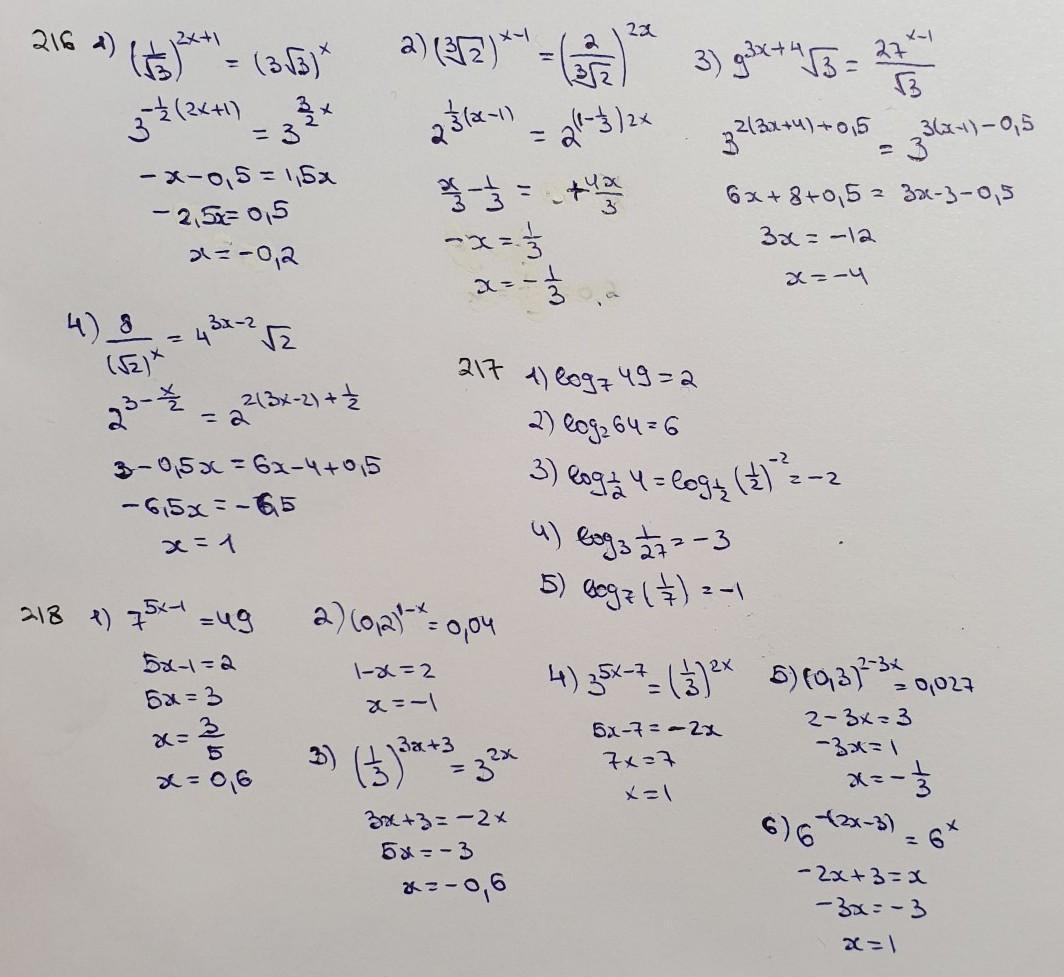 216 1) (1/√3)^(2x+1) = (3√3)^x
3^(-1/2(2x+1)) = 3^(3/2 x)
-x-0,5 = 1,5x
-2,5x = 0,5
x = -0,2
2) (∛2)^(x-1) = (2/∛2)^(2x)
2^(1/3(x-1)) = 2^((1-1/3)2x)
x/3 - 1/3 = +4x/3
-x = 1/3
x = -1/3
3) 9^(3x+4) √3 = 27^(x-1)/√3
3^(2(3x+4)+0,5) = 3^(3(x-1)-0,5)
6x+8+0,5 = 3x-3-0,5
3x = -12
x = -4
4) 8/(√2)^x = 4^(3x-2) √2
2^(3-x/2) = 2^(2(3x-2)+1/2)
3-0,5x = 6x-4+0,5
-6,5x = -6,5
x = 1
217 1) log₇ 49 = 2
2) log₂ 64 = 6
3) log_(1/2) 4 = log_(1/2) (1/2)^(-2) = -2
4) log₃ 1/27 = -3
5) log₇ (1/7) = -1
218 1) 7^(5x-1) = 49
5x-1 = 2
5x = 3
x = 3/5
x = 0,6
2) (0,2)^(1-x) = 0,04
1-x = 2
x = -1
3) (1/3)^(3x+3) = 3^(2x)
3x+3 = -2x
5x = -3
x = -0,6
4) 3^(5x-7) = (1/3)^(2x)
5x-7 = -2x
7x = 7
x = 1
5) (0,3)^(2-3x) = 0,027
2-3x = 3
-3x = 1
x = -1/3
6) 6^(-(2x-3)) = 6^x
-2x+3 = x
-3x = -3
x = 1